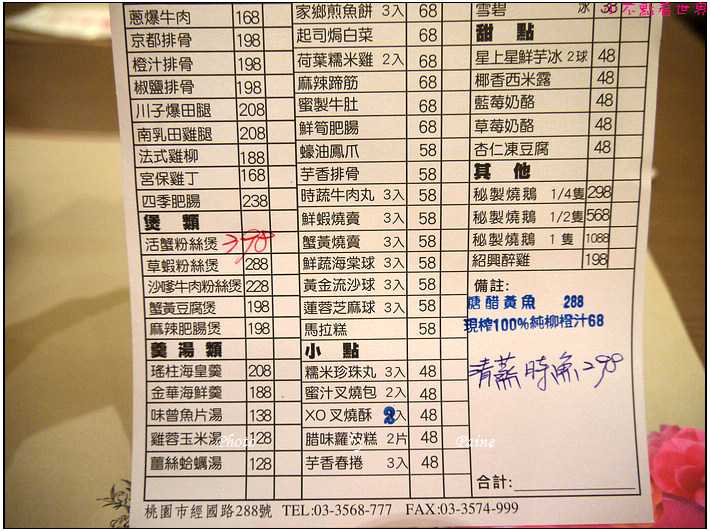 蔥爆牛肉 168
京都排骨 198
橙汁排骨 198
椒鹽排骨 198
川子爆田腿 208
南乳田雞腿 208
法式雞柳 188
宮保雞丁 168
四季肥腸 238
煲類
活蟹粉絲煲 390
草蝦粉絲煲 288
沙嗲牛肉粉絲煲 228
蟹黃豆腐煲 198
麻辣肥腸煲 198
羹湯類
瑤柱海皇羹 208
金華海鮮羹 188
味曾魚片湯 138
雞蓉玉米湯 128
薑絲蛤蠣湯 128
家鄉煎魚餅 3入 68
起司焗白菜 68
荷葉糯米雞 2入 68
麻辣蹄筋 68
蜜製牛肚 68
鮮筍肥腸 68
蠔油鳳爪 58
芋香排骨 58
時蔬牛肉丸 3入 58
鮮蝦燒賣 3入 58
蟹黃燒賣 3入 58
鮮蔬海棠球 3入 58
黃金流沙球 3入 58
蓮蓉芝麻球 3入 58
馬拉糕 58
小點
糯米珍珠丸 3入 48
蜜汁叉燒包 2入 48
XO叉燒酥 2入 48
腊味蘿波糕 2片 48
芋香春捲 3入 48
雪碧 冰 38
甜點
星上星鮮芋冰 2球 48
椰香西米露 48
藍莓奶酪 48
草莓奶酪 48
杏仁凍豆腐 48
其他
秘製燒鵝 1/4隻 298
秘製燒鵝 1/2隻 568
秘製燒鵝 1隻 1088
紹興醉雞 198
備註:
糖醋黃魚 288
現榨100%純柳橙汁68
清蒸時魚290
合計:
桃園市經國路288號 TEL:03-3568-777 FAX:03-3574-999
Photo by Paine